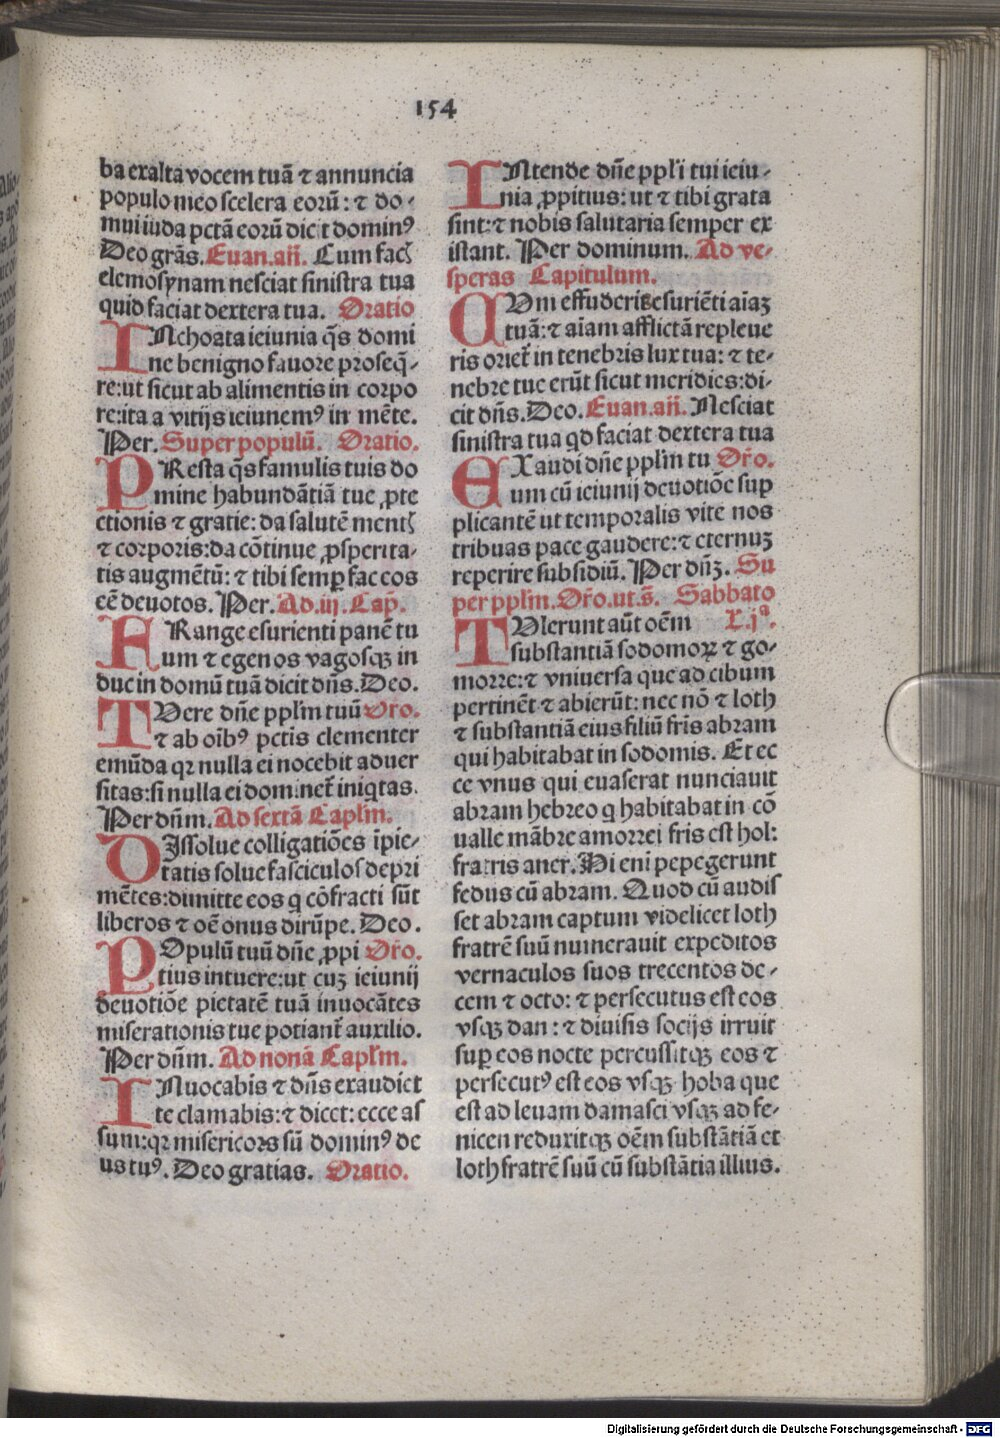 154
ba exalta vocem tuā ⁊ annuncia
populo meo scelera eorū: ⁊ do-
mui iuda pctā eorū dicit dominꝰ
Deo grās. Euan. añ. Cum facꝭ
elemosynam nesciat sinistra tua
quid faciat dextera tua. Oratio
INchoata ieiunia q̄s domi
ne benigno fauore proseq̄-
re: ut sicut ab alimentis in corpo
re: ita a vitijs ieiunemꝰ in mēte.
Per. Super populū. Oratio.
PResta q̄s famulis tuis do
mine habundātiā tue ꝓte
ctionis ⁊ gratie: da salutē mentꝭ
⁊ corporis: da cōtinue ꝓsperita-
tis augmētū: ⁊ tibi semꝑ fac eos
eē deuotos. Per. Ad .iij. Cap̄.
FRange esurienti panē tu
um ⁊ egenos vagosqꝫ in
duc in domū tuā dicit dn̄s. Deo.
TUere dn̄e ppl̄m tuū Oro.
⁊ ab oībꝰ pctis clementer
emūda qꝛ nulla ei nocebit aduer
sitas: si nulla ei dominet̄ iniqtas.
Per dn̄m. Ad sextā Capl̄m.
DIssolue colligatiōes īpie-
tatis solue fasciculos depri
mētes: dimitte eos q cōfracti sūt
liberos ⁊ oē onus dirūpe. Deo.
POpulū tuū dn̄e ꝓpi Or̄o.
tius intuere: ut cuꝫ ieiunij
deuotiōe pietatē tuā inuocātes
miserationis tue potiant̄ auxilio.
Per dn̄m. Ad nonā Capl̄m.
INuocabis ⁊ dn̄s exaudiet
te clamabis: ⁊ dicet: ecce as
sum: qꝛ misericors sū dominꝰ de
us tuꝰ. Deo gratias. Oratio.
INtende dn̄e ppl̄i tui ieiu-
nia ꝓpitius: ut ⁊ tibi grata
sint: ⁊ nobis salutaria semper ex
istant. Per dominum. Ad ve-
speras Capitulum.
CUm effuderis esuriēti aīaꝫ
tuā: ⁊ aīam afflictā repleue
ris oriet̄ in tenebris lux tua: ⁊ te-
nebre tue erūt sicut meridies: di-
cit dn̄s. Deo. Euan. añ. Nesciat
sinistra tua qd faciat dextera tua
EXaudi dn̄e ppl̄m tu Or̄o.
um cū ieiunij deuotiōe sup
plicantē ut temporalis vite nos
tribuas pace gaudere: ⁊ eternuꝫ
reperire subsidiū. Per dn̄ꝫ. Su
per ppl̄m. Or̄o. ut. s̄. Sabbato
TUlerunt aūt oēm L. jª.
substantiā sodomoꝝ ⁊ go-
morre: ⁊ vniuersa que ad cibum
pertinēt ⁊ abierūt: nec nō ⁊ loth
⁊ substantiā eius filiū fr̄is abram
qui habitabat in sodomis. Et ec
ce vnus qui euaserat nunciauit
abram hebreo q habitabat in cō
ualle mābre amorrei fr̄is est hol:
fratris aner. Hi eni pepegerunt
fedus cū abram. Quod cū audis
set abram captum videlicet loth
fratrē suū numerauit expeditos
vernaculos suos trecentos de-
cem ⁊ octo: ⁊ persecutus est eos
vsqꝫ dan: ⁊ diuisis socijs irruit
suꝑ eos nocte percussitqꝫ eos ⁊
persecutꝰ est eos vsqꝫ hoba que
est ad leuam damasci vsqꝫ ad fe-
nicen reduxitqꝫ oēm substātiā et
loth fratrē suū cū substātia illius.
Digitalisierung gefördert durch die Deutsche Forschungsgemeinschaft - DFG